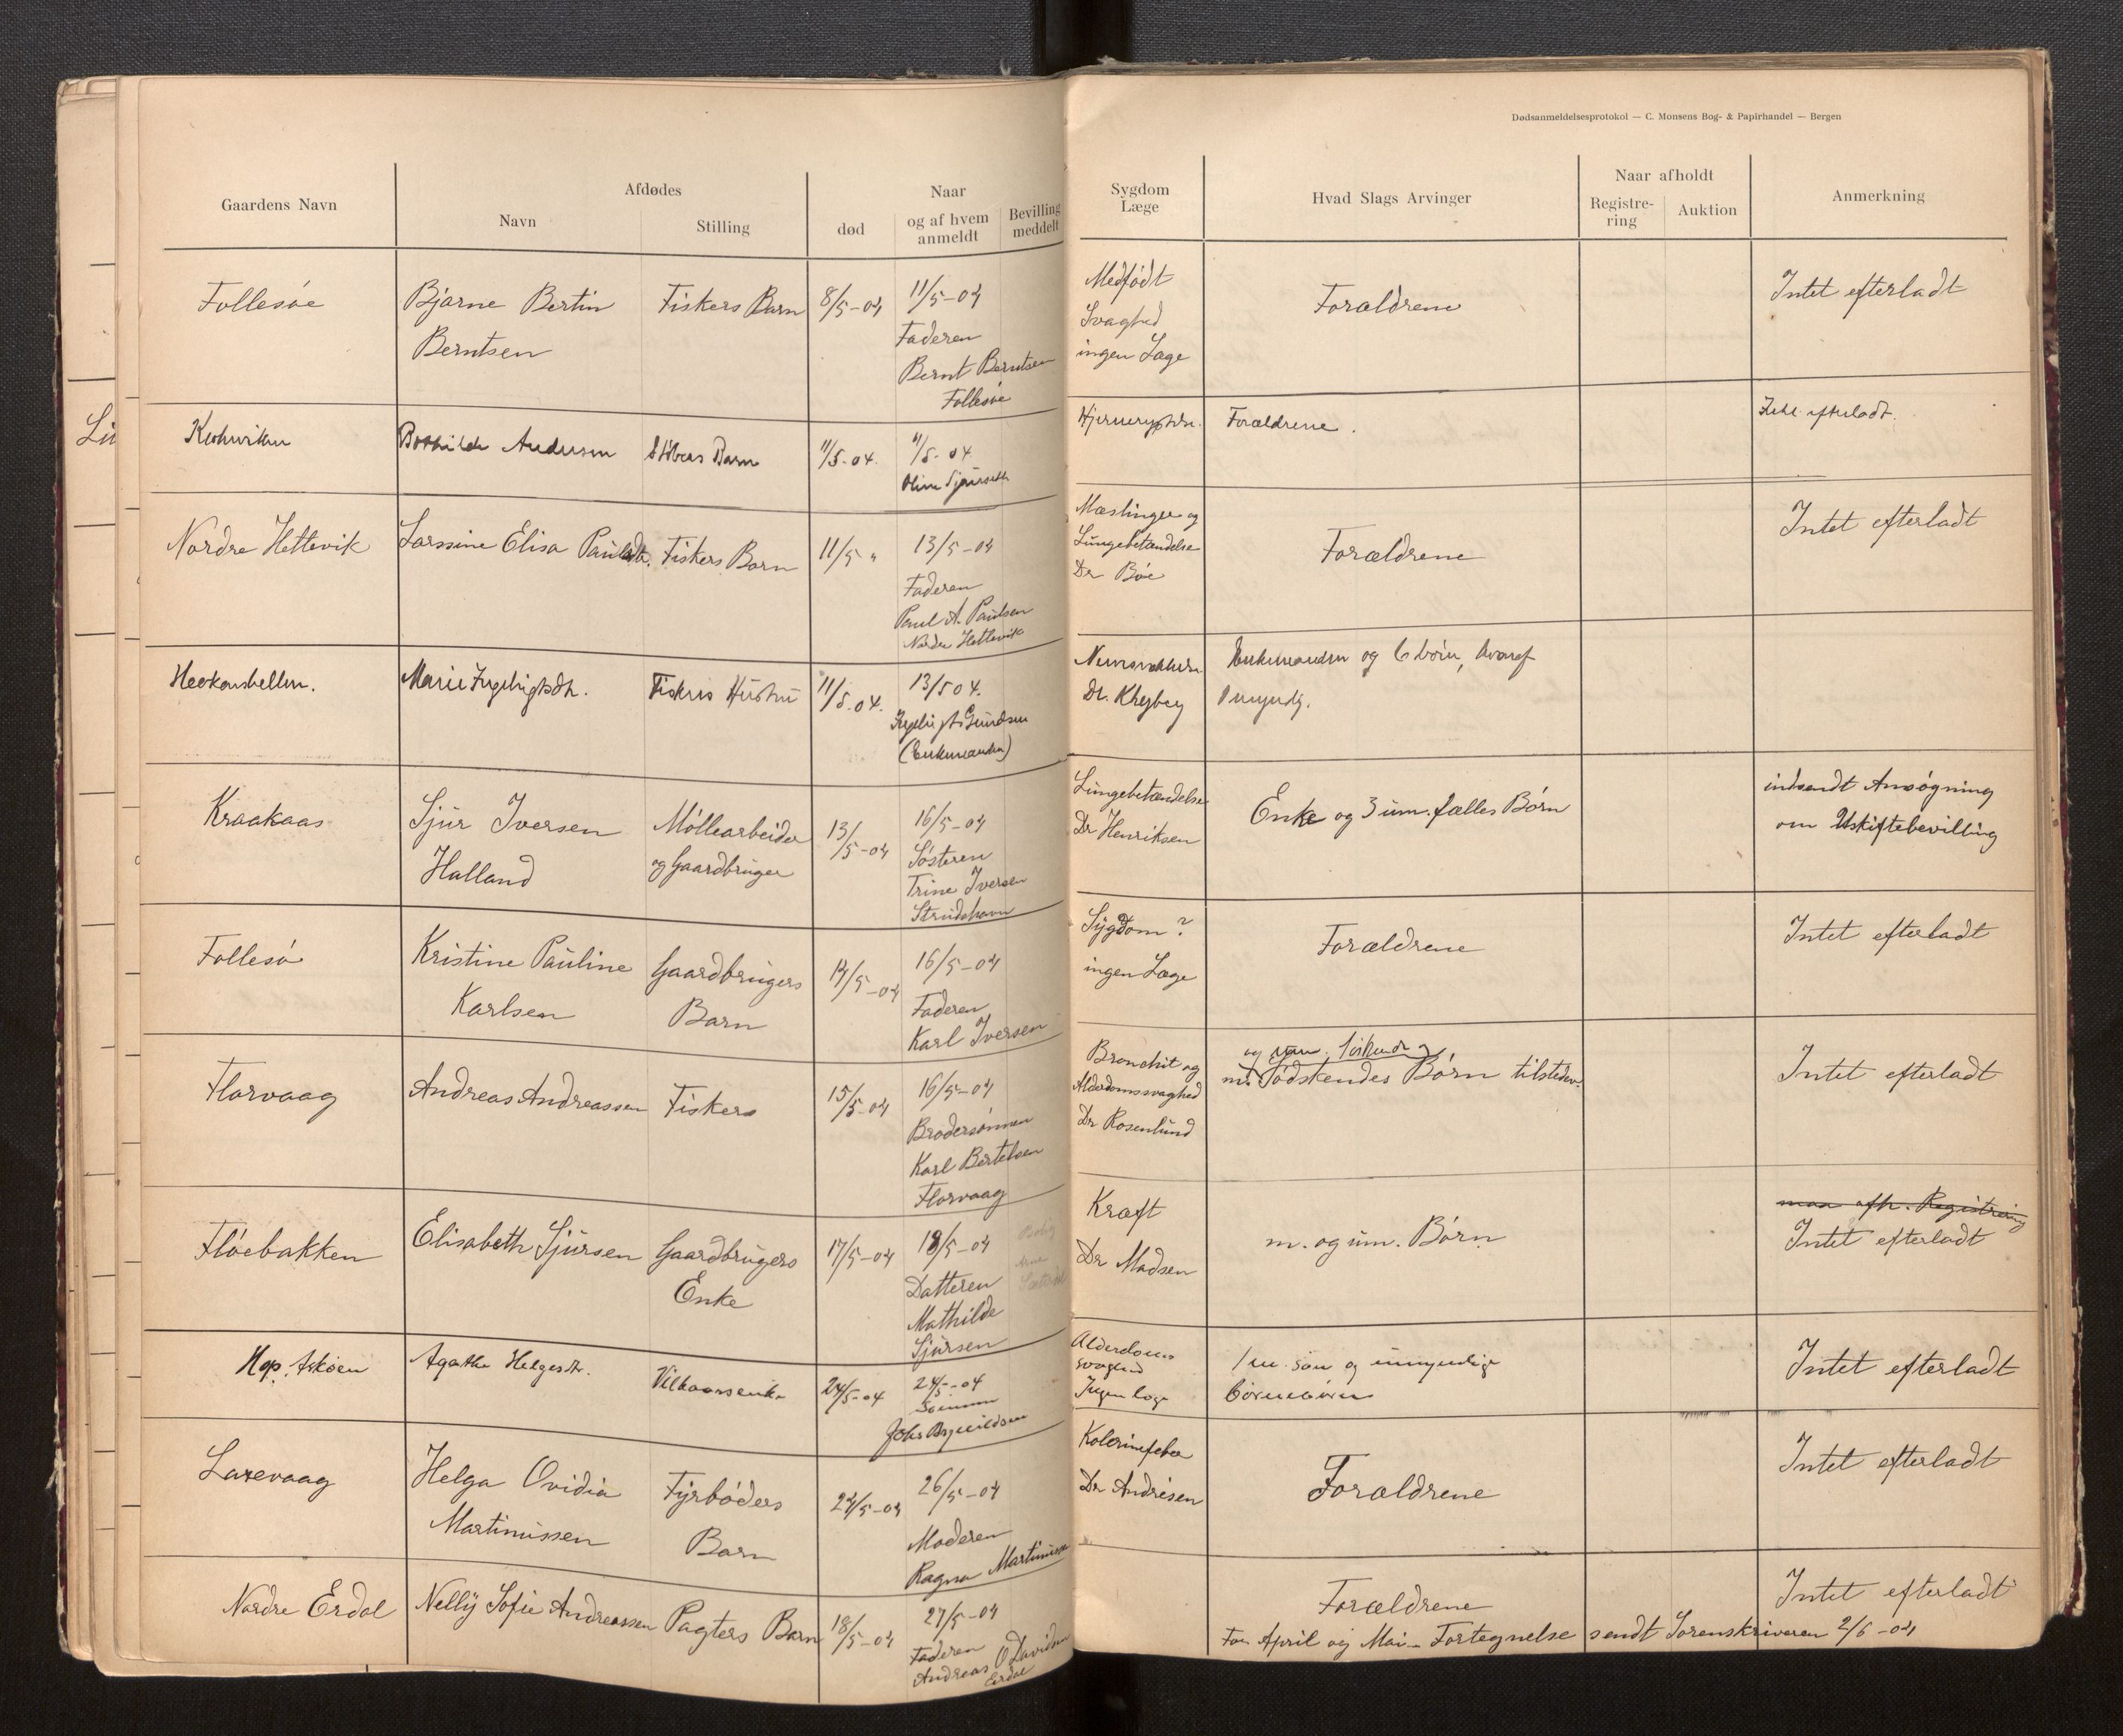 Dødsanmeldelsesprotokol — C. Monsens Bog- & Papirhandel — Bergen
Gaardens Navn
Afdødes
Navn
Stilling
Naar
død
og af hvem
anmeldt
Bevilling
meddelt
Sygdom
Læge
Hvad Slags Arvinger
Naar afholdt
Registre-
ring
Auktion
Anmerkning
Follesøe
Bjarne Bertin
Berntsen
Fiskers Barn
8/5-04
11/5-04
Faderen
Bernt Berntsen
Follesøe
Medfødt
Svaghed
ingen Læge
Forældrene
Intet efterladt
Andersen
Barn
11/5-04.
11/5-04
Forældrene.
efterladt.
Nordre Hettevik
Larssine Elisa Paulsdtr.
Fiskers Barn
11/5 "
13/5-04
Faderen
Paul A. Paulsen
Nordre Hettevik
Mæslinger og
Lungebetændelse
Dr Bøe
Forældrene
Intet efterladt
Marie Ingebrigtsdtr.
Fiskers Hustru
11/5-04.
13/5 04.
(Enkemanden)
Dr.
Enkemanden og 6 børn, hvoraf
umyndig.
Kraakaas
Sjur Iversen
Halland
Møllearbeider
og Gaardbruger
13/5-04
16/5-04
Søsteren
Trine Iversen
Strudshavn
Lungebetændelse
Dr Henriksen
Enke og 3 um. fælles Børn
indsendt Ansøgning
om Uskiftebevilling
Follesø
Kristine Pauline
Karlsen
Gaardbrugers
Barn
14/5-04
16/5-04
Faderen
Karl Iversen
Sygdom ?
ingen Læge
Forældrene
Intet efterladt
Florvaag
Andreas Andreassen
Fiskers
15/5-04
16/5-04
Brodersønnen
Karl Bertelsen
Florvaag
Bronchit og
Alderdomssvaghed
Dr Rosenlund
og um. Søskende
m. Sødskendes Børn tilstede
Intet efterladt
Fløebakken
Elisabeth Sjursen
Gaardbrugers
Enke
17/5-04
18/5-04
Datteren
Mathilde
Sjursen
Kræft
Dr Madsen
m. og um. Børn
maa afh. Registrering
Intet efterladt
Hop. Askøen
Agathe Helgesdtr.
Vilkaarsenke
24/5-04
24/5-04
Sønnen
Johs Brynildsen
Alderdoms
svaghed
Ingen læge
1 m. søn og umyndige
børnebørn
Intet efterladt
Laxevaag
Helga Ovidia
Martinussen
Fyrbøders
Barn
24/5-04
26/5-04
Moderen
Ragna Martinussen
Kolerinefeber
Dr Andresen
Forældrene
Intet efterladt
Nordre Erdal
Nelly Sofie Andreassen
Pagters Barn
18/5-04
27/5-04
Faderen
Andreas O Davidsen
Erdal
Forældrene
Intet efterladt
For April og Mai - Fortegnelse sendt Sorenskriveren 2/6-04